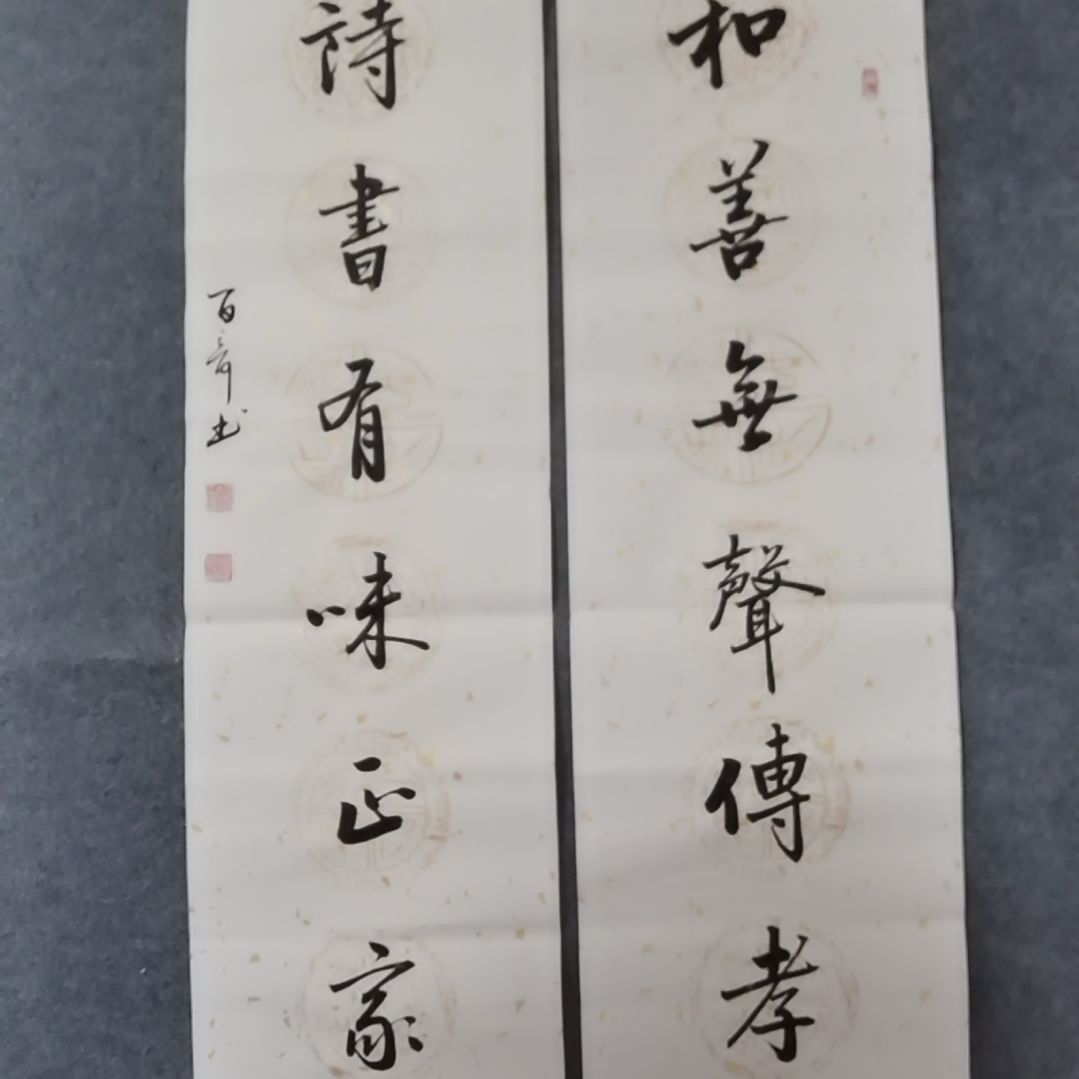 和善無聲傳孝
詩書有味正家